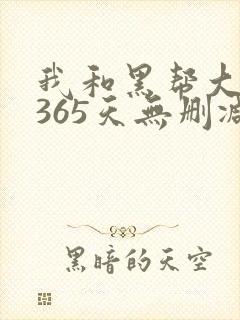 我和黑帮大
365天無删减
黑暗的天空